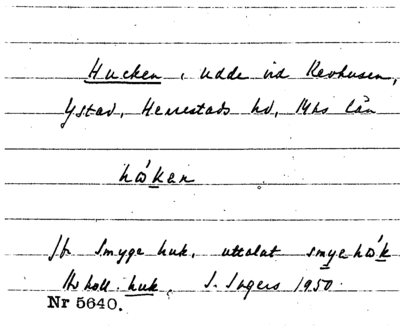 Hucken, udde vid Revhusen,
Ystad, Herrestads hd, Mhs län
høken
Jfr Smyge huk, uttalat smygehøk
holl. huk. S. Ingers 1950.
Nr 5640.